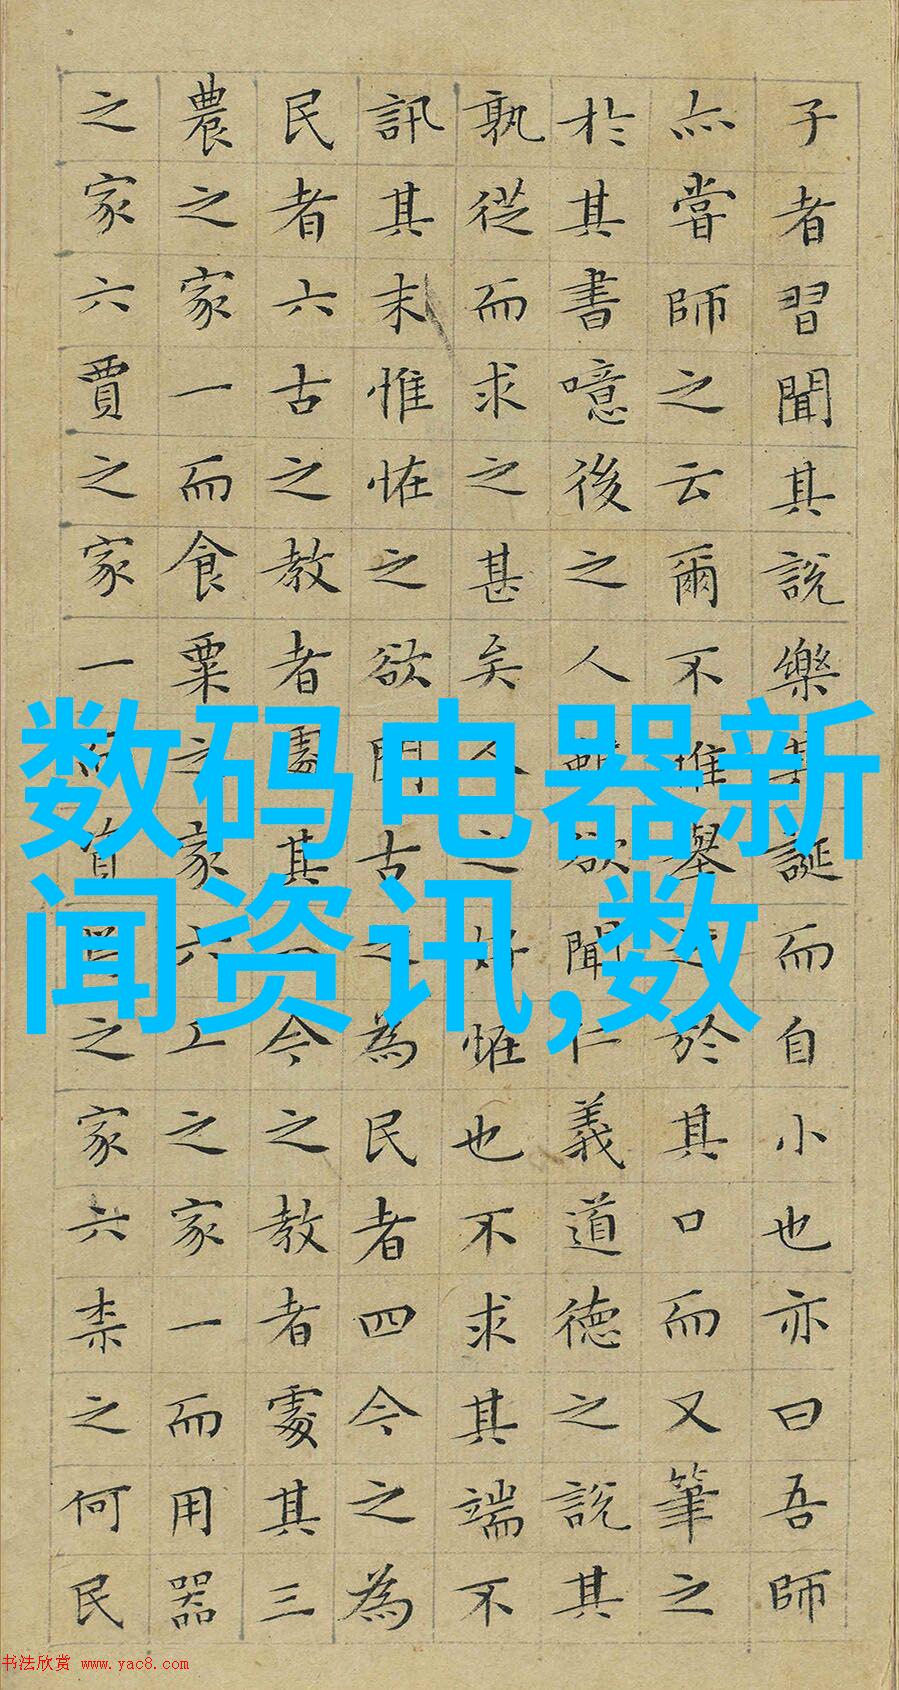 子者習聞其說樂其誕而自小也亦曰吾師
亦嘗師之云爾不惟舉之於其口而又筆之
於其書噫後之人雖欲聞仁義道德之說其
孰從而求之甚矣人之好怪也不求其端不
訊其末惟怪之欲聞古之為民者四今之為
民者六古之教者處其一今之教者處其三
農之家一而食粟之家六工之家一而用器
之家六賈之家一而資焉之家六柰之何民
数码电器新
闻资讯,数
书法欣赏 www.yac8.com